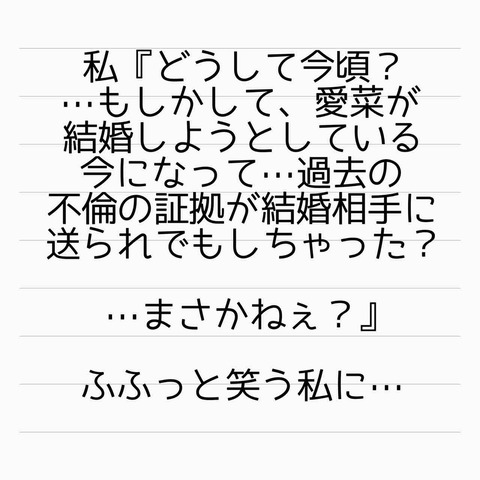 私『どうして今頃？
…もしかして、愛菜が
結婚しようとしている
今になって…過去の
不倫の証拠が結婚相手に
送られでもしちゃった？
…まさかねぇ？』
ふふっと笑う私に…